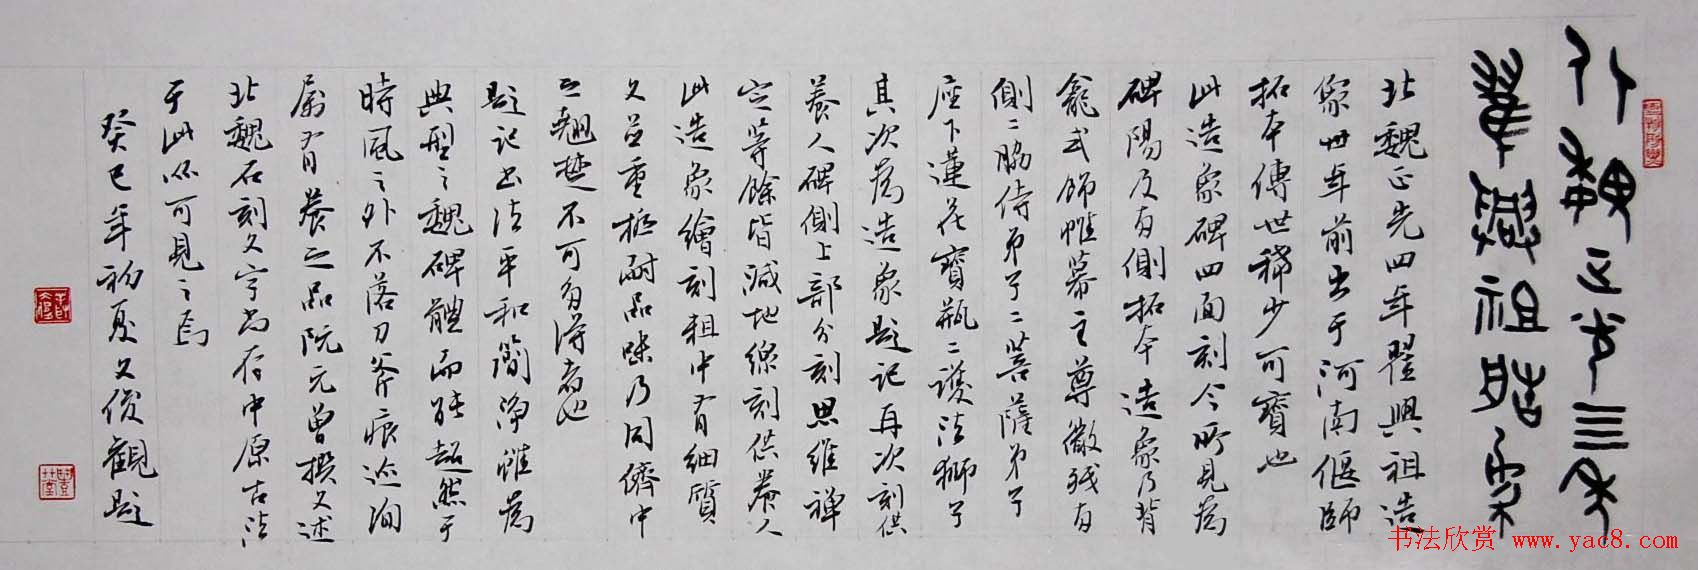 北魏正光四年
翟興祖造象
北魏正光四年翟興祖造
象卅年前出于河南偃師
拓本傳世稀少可寶也
此造象碑四面刻今所見為
碑陽及右側拓本造象乃背
龕式飾帷幕主尊微殘右
側二脇侍弟子二菩薩弟子
座下蓮花寶瓶二護法獅子
其次為造象題記再次刻供
養人碑側上部分刻思維禅
定等餘皆減地線刻供養人
此造象繪刻粗中有細質
文並重極耐品味乃同儕中
之翹楚不可多得者也
題記書法平和簡淨雖為
典型之魏碑體而能超然于
時風之外不落刀斧痕迹洵
屬有養之品阮元曾撰文述
北魏石刻文字尚存中原古法
于此亦可見之焉
癸巳年初夏文俊觀題
书法欣赏 www.yac8.com